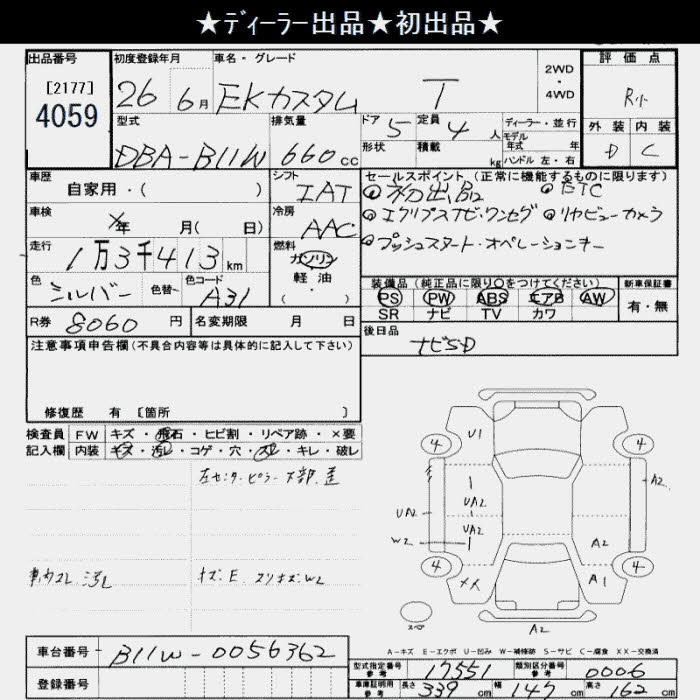 ★ディーラー出品★初出品★
出品番号 初度登録年月 車名・グレード 2WD・4WD 評価点
[2177] 4059 26 6月 EKカスタム T R小
型式 排気量 ドア 5 定員 4人 ディーラー・並行 外装 内装
DBA-B11W 660cc 形状 積載 kg モデル年式 年 ハンドル 左・右 D C
車歴 自家用・( ) シフト IAT セールスポイント (正常に機能するものに限ります)
初出品 ETC
車検 年 月( 日) 冷房 AAC エクリプスナビ・ワンセグ リヤビューカメラ
走行 1万3千413km 燃料 ガソリン 軽・油 ・( ) プッシュスタート・オペレーションキー
色 シルバー 色替 色コード A31 装備品 (純正品に限り○をつけてください) 新車保証書
PS PW ABS エアB AW 有・無
SR ナビ TV カワ
R券 8060円 名変期限 月 日 後日品
ナビSD
注意事項申告欄(不具合内容等は具体的に記入して下さい)
修復歴 有 [箇所 ]
検査員 FW キズ・飛石・ヒビ割・リペア跡・×要
記入欄 内装 キズ・汚レ・コゲ・穴・スレ・キレ・破レ
左センターピラー下部
4 U1 4
A2
UA2 UA2
UA2
W2 A2
4 XX A1 4
A2
キズ.E スリキズW2
A-キズ E-エクボ U-凹み W-補修跡 S-サビ C-腐食 XX-交換済
車台番号 B11W-0056362
型式指定番号 参考 17551 類別区分番号 参考 0006
登録番号
車庫証明用 参考 長さ 339cm 幅 147cm 高さ 162cm